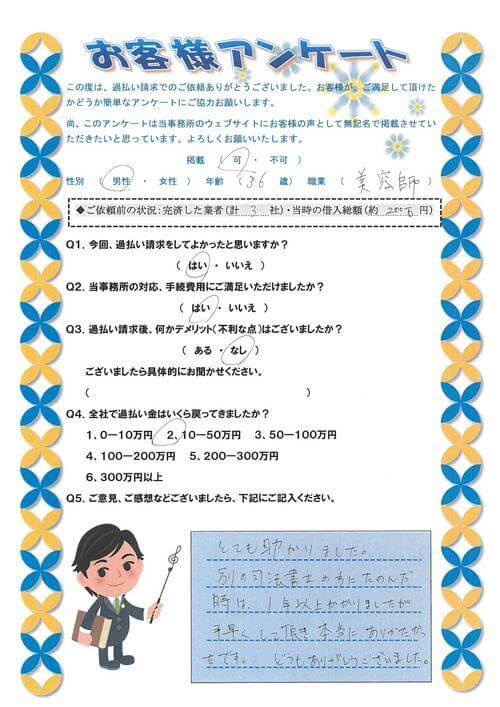 お客様アンケート
この度は、過払い請求でのご依頼ありがとうございました。お客様が、ご満足して頂けた
かどうか簡単なアンケートにご協力お願いします。
尚、このアンケートは当事務所のウェブサイトにお客様の声として無記名で掲載させてい
ただきたいと思っています。よろしくお願いいたします。
掲載 ( 可 ・ 不可 )
性別 ( 男性 ・ 女性 ) 年齢 ( 36 歳) 職業 ( 美容師 )
◆ご依頼前の状況:完済した業者(計 3 社)・当時の借入総額(約 200万 円)
Q1. 今回、過払い請求をしてよかったと思いますか?
( はい ・ いいえ )
Q2. 当事務所の対応、手続費用にご満足いただけましたか?
( はい ・ いいえ )
Q3. 過払い請求後、何かデメリット(不利な点)はございましたか?
( ある ・ なし )
ございましたら具体的にお聞かせください。
( )
Q4. 全社で過払い金はいくら戻ってきましたか?
1、0ー10万円 2、10ー50万円 3、50ー100万円
4、100ー200万円 5、200ー300万円
6、300万円以上
Q5. ご意見、ご感想などございましたら、下記にご記入ください。
とても助かりました。
別の司法書士の方にたのんだ
時は、1年以上かかりましたが
手早くして頂き本当にありがたかっ
たです。 どうもありがとうございました。